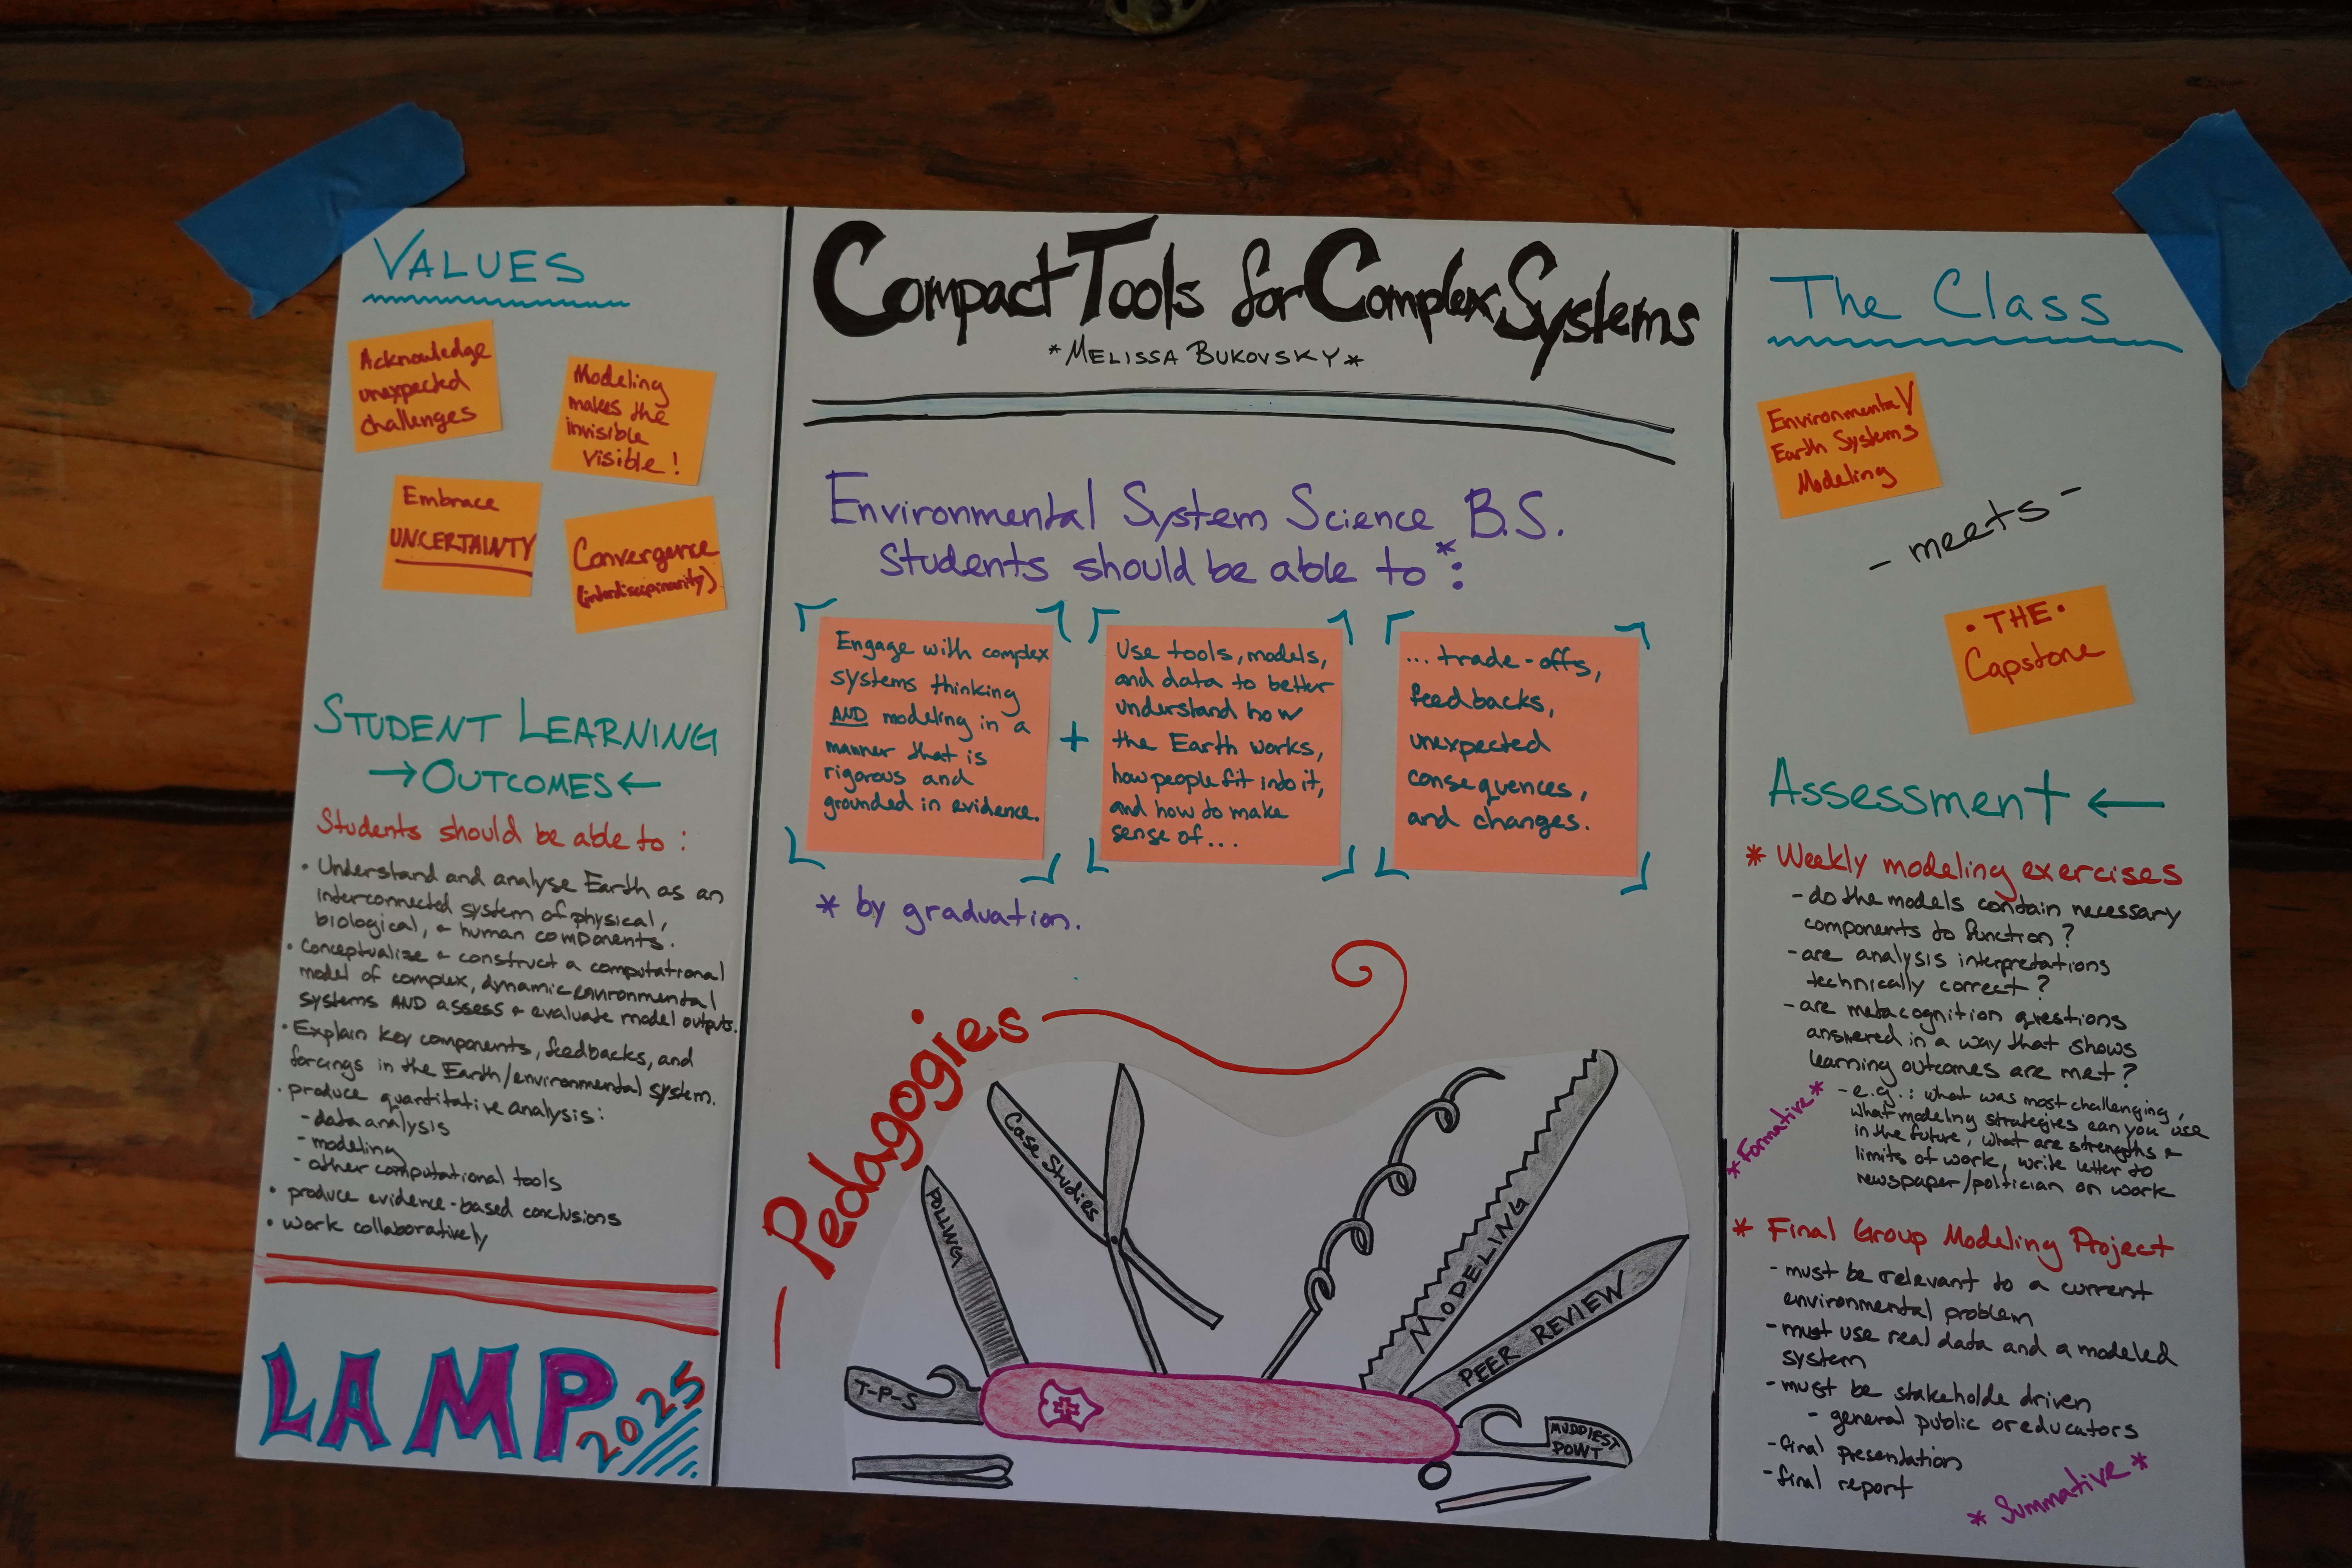 VALUES
Acknowledge
unexpected
challenges
Modeling
makes the
invisible
visible!
Embrace
UNCERTAINTY
Convergence
(interdisciplinarity)
STUDENT LEARNING
→OUTCOMES←
Students should be able to:
• Understand and analyse Earth as an
interconnected system of physical,
biological, + human components.
• Conceptualize + construct a computational
model of complex, dynamic environmental
systems AND assess + evaluate model outputs.
• Explain key components, feedbacks, and
forcings in the Earth/environmental system.
• produce quantitative analysis:
- data analysis
- modeling
- other computational tools
• produce evidence-based conclusions
• work collaboratively
LAMP
2025
Compact Tools for Complex Systems
*MELISSA BUKOVSKY*
Environmental System Science B.S.
students should be able to*:
Engage with complex
systems thinking
AND modeling in a
manner that is
rigorous and
grounded in evidence.
+
Use tools, models,
and data to better
understand how
the Earth works,
how people fit into it,
and how to make
sense of...
...trade-offs,
feedbacks,
unexpected
consequences,
and changes.
* by graduation.
Pedagogies
POLLING
Case Studies
MODELING
PEER REVIEW
T-P-S
MUDDIEST
POINT
The Class
Environmental/
Earth Systems
Modeling
- meets -
• THE •
Capstone
Assessment ←
* Weekly modeling exercises
- do the models contain necessary
components to function?
- are analysis interpretations
technically correct?
- are metacognition questions
answered in a way that shows
learning outcomes are met?
- e.g.: what was most challenging,
what modeling strategies can you use
in the future, what are strengths +
limits of work, write letter to
newspaper/politician on work
*Formative*
* Final Group Modeling Project
- must be relevant to a current
environmental problem
- must use real data and a modeled
system
- must be stakeholde driven
- general public or educators
- final presentation
- final report
* Summative *